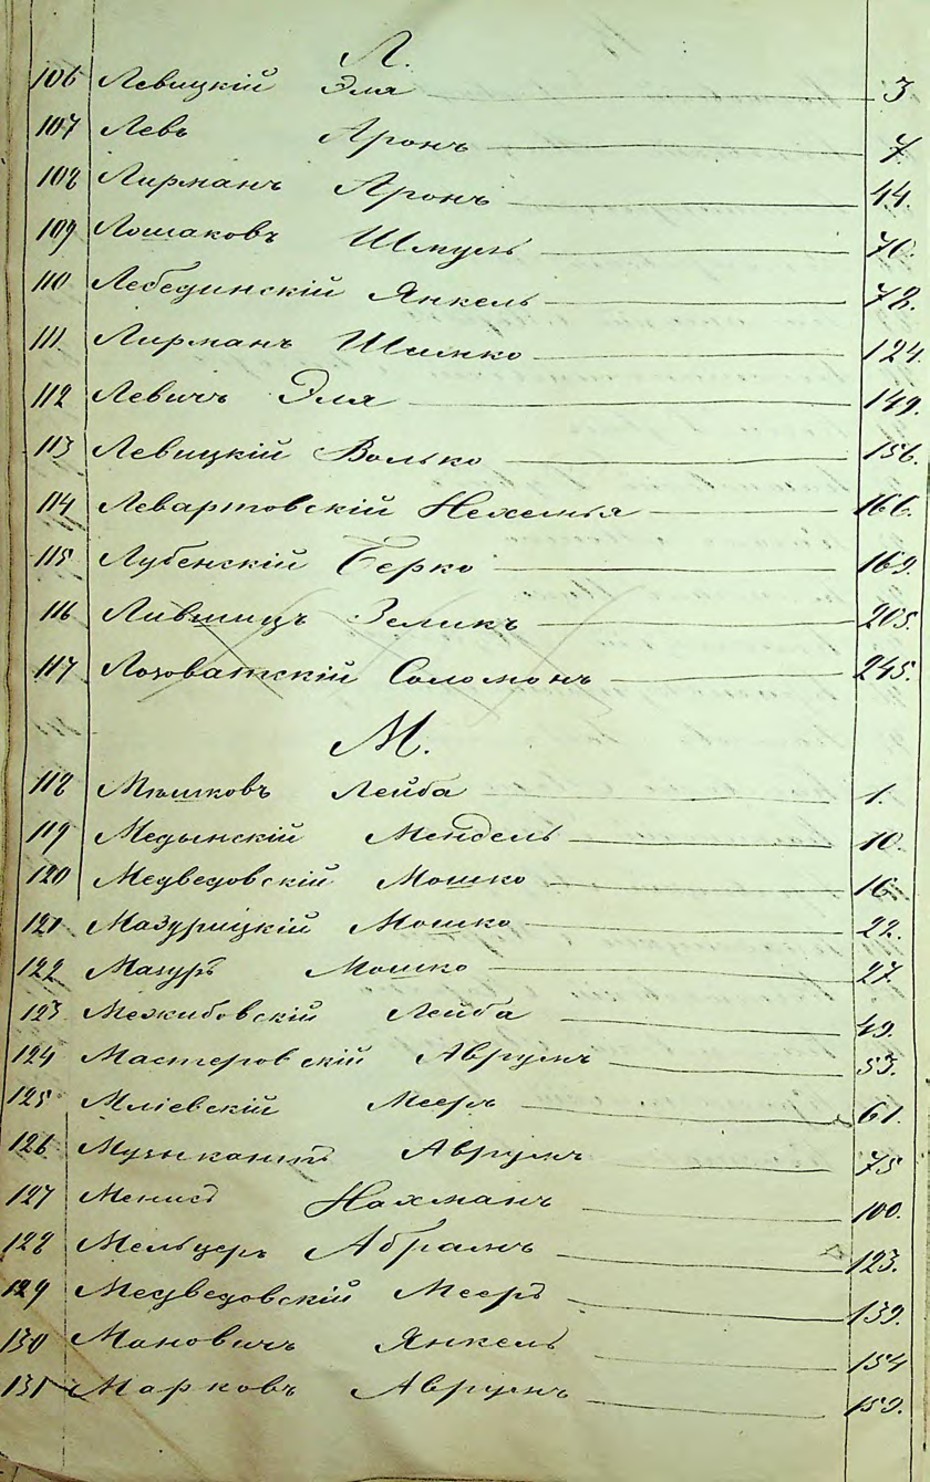 Л.
106 Левицкій Эля 3
107 Левъ Аронъ 7.
108 Лирманъ Аронъ 44.
109 Лошаковъ Шмуль 70.
110 Лебединскій Янкель 78.
111. Лирманъ Шимко 124.
112 Левичъ Эля 149.
113 Левицкій Волько 156.
114 Левартовскій Нехемья 166.
115 Лубенскій Берко 169.
116 Лившицъ Зеликъ 205.
117 Лозоватскій Соломонъ 245.
М.
118 Мѣшковъ Лейба 1.
119 Медынскій Мендель 10.
120 Медведовскій Мошко 16.
121 Мазурицкій Мошко 22.
122 Мазуръ Мошко 27.
123 Межибовскій Лейба 49.
124 Мастеровскій Аврумъ 53.
125 Мліевскій Мееръ 61.
126 Музыкантъ Аврумъ 75
127 Менисъ Нахманъ 100.
128 Мельцеръ Абрамъ 123.
129 Медведовскій Мееръ 139.
130 Мановичъ Янкель 154
131 Марковъ Аврумъ 159.